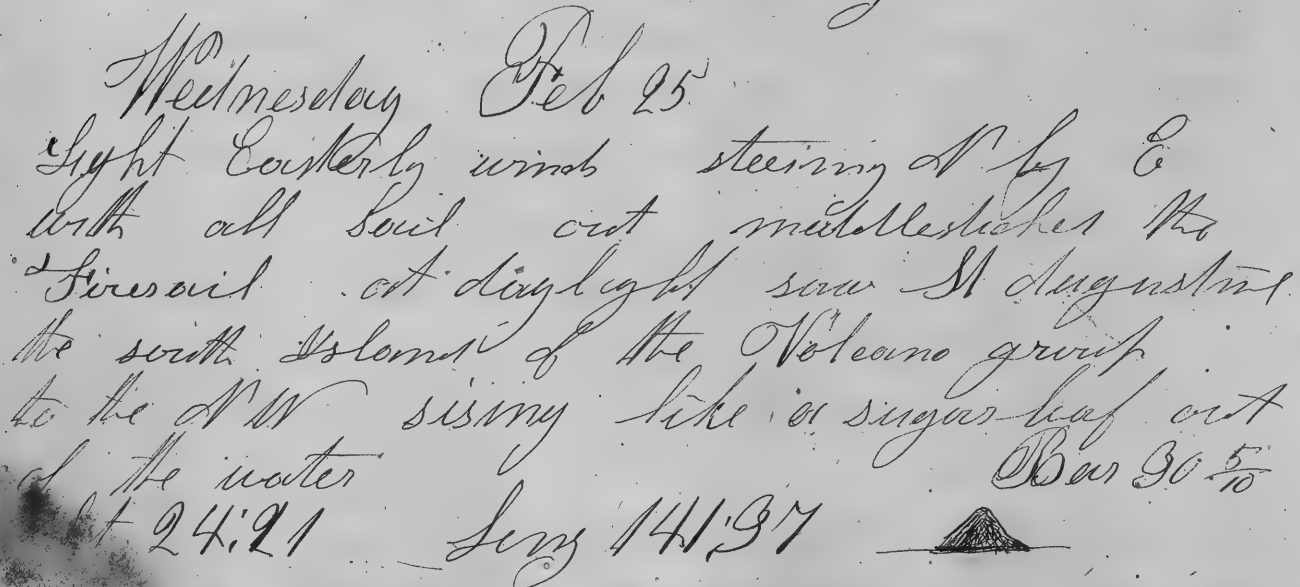 Wednesday Feb 25
Light Easterly winds steering N by E
with all Sail out the
Firesail at daylight saw St Augustine
the south Island of the Volcano group
to the NW rising like a sugar loaf out
of the water Bar 30 5/10
Lat 24:21 Long 141:37